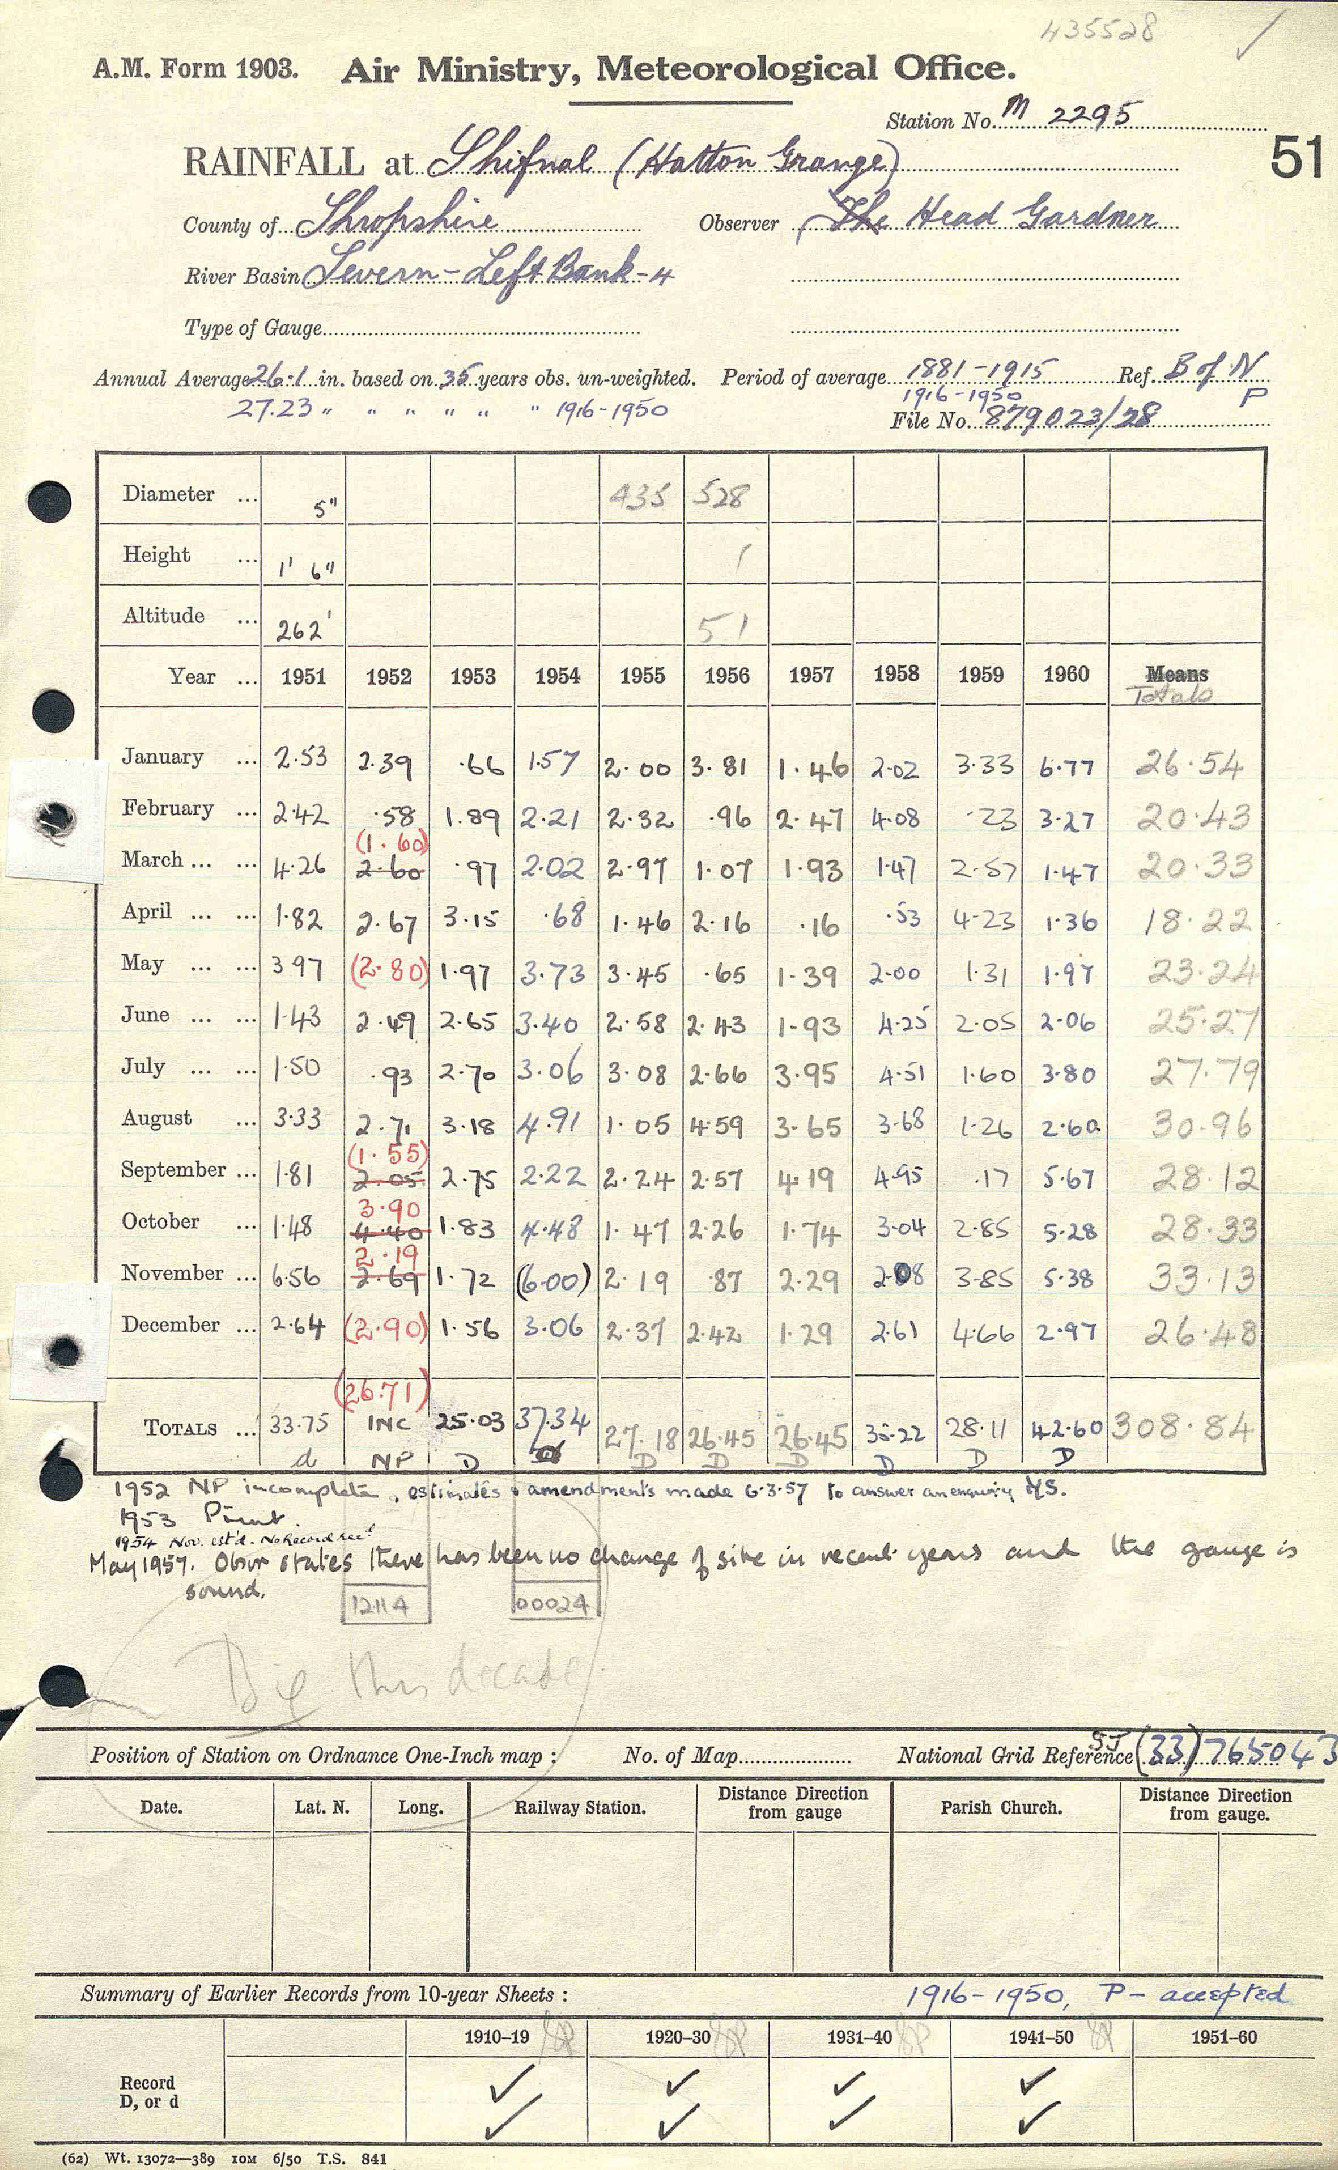 435528 ✓
A.M. Form 1903. Air Ministry, Meteorological Office.
Station No. M 2295
51
RAINFALL at Shifnal (Hatton Grange)
County of Shropshire Observer The Head Gardner
River Basin Severn - Left Bank - 4
Type of Gauge
Annual Average 26.1 in. based on 35 years obs. un-weighted. Period of average 1881-1915 Ref. B of N
27.23 " " " " " " 1916-1950 1916-1950 P
File No. 879023/28
Diameter ... 5" 435 528
Height ... 1' 6" 1
Altitude ... 262' 51
Year ... 1951 1952 1953 1954 1955 1956 1957 1958 1959 1960 Means
Totals
January ... 2.53 2.39 .66 1.57 2.00 3.81 1.46 2.02 3.33 6.77 26.54
February ... 2.42 .58 1.89 2.21 2.32 .96 2.47 4.08 .23 3.27 20.43
(1.60)
March ... ... 4.26 2.60 .97 2.02 2.97 1.07 1.93 1.47 2.57 1.47 20.33
April ... ... 1.82 2.67 3.15 .68 1.46 2.16 .16 .53 4.23 1.36 18.22
May ... ... 3.97 (2.80) 1.97 3.73 3.45 .65 1.39 2.00 1.31 1.97 23.24
June ... ... 1.43 2.49 2.65 3.40 2.58 2.43 1.93 4.25 2.05 2.06 25.27
July ... ... 1.50 .93 2.70 3.06 3.08 2.66 3.95 4.51 1.60 3.80 27.79
August ... 3.33 2.71 3.18 4.91 1.05 4.59 3.65 3.68 1.26 2.60 30.96
(1.55)
September ... 1.81 2.05 2.75 2.22 2.24 2.57 4.19 4.95 .17 5.67 28.12
3.90
October ... 1.48 4.40 1.83 4.48 1.47 2.26 1.74 3.04 2.85 5.28 28.33
2.19
November ... 6.56 2.69 1.72 (6.00) 2.19 .87 2.29 2.08 3.85 5.38 33.13
December ... 2.64 (2.90) 1.56 3.06 2.37 2.42 1.29 2.61 4.66 2.97 26.48
(26.71)
TOTALS ... 33.75 INC 25.03 37.34 27.18 26.45 26.45 35.22 28.11 42.60 308.84
d NP D D D D D D D
1952 NP incomplete, estimates & amendments made 6.3.57 to answer an enquiry
1953 Print.
1954 Nov. est'd. No Record rec'd
May 1957. Obsvr states there has been no change of site in recent years and the gauge is
sound.
12114 00024
Dig this decade
Position of Station on Ordnance One-Inch map : No. of Map National Grid Reference SJ (33) 765043
Date. Lat. N. Long. Railway Station. Distance Direction from gauge Parish Church. Distance Direction from gauge.
Summary of Earlier Records from 10-year Sheets : 1916-1950, P - accepted
1910–19 1920–30 1931–40 1941–50 1951–60
Record ✓ ✓ ✓ ✓
D, or d ✓ ✓ ✓ ✓
(62) Wt. 13072—389 10M 6/50 T.S. 841